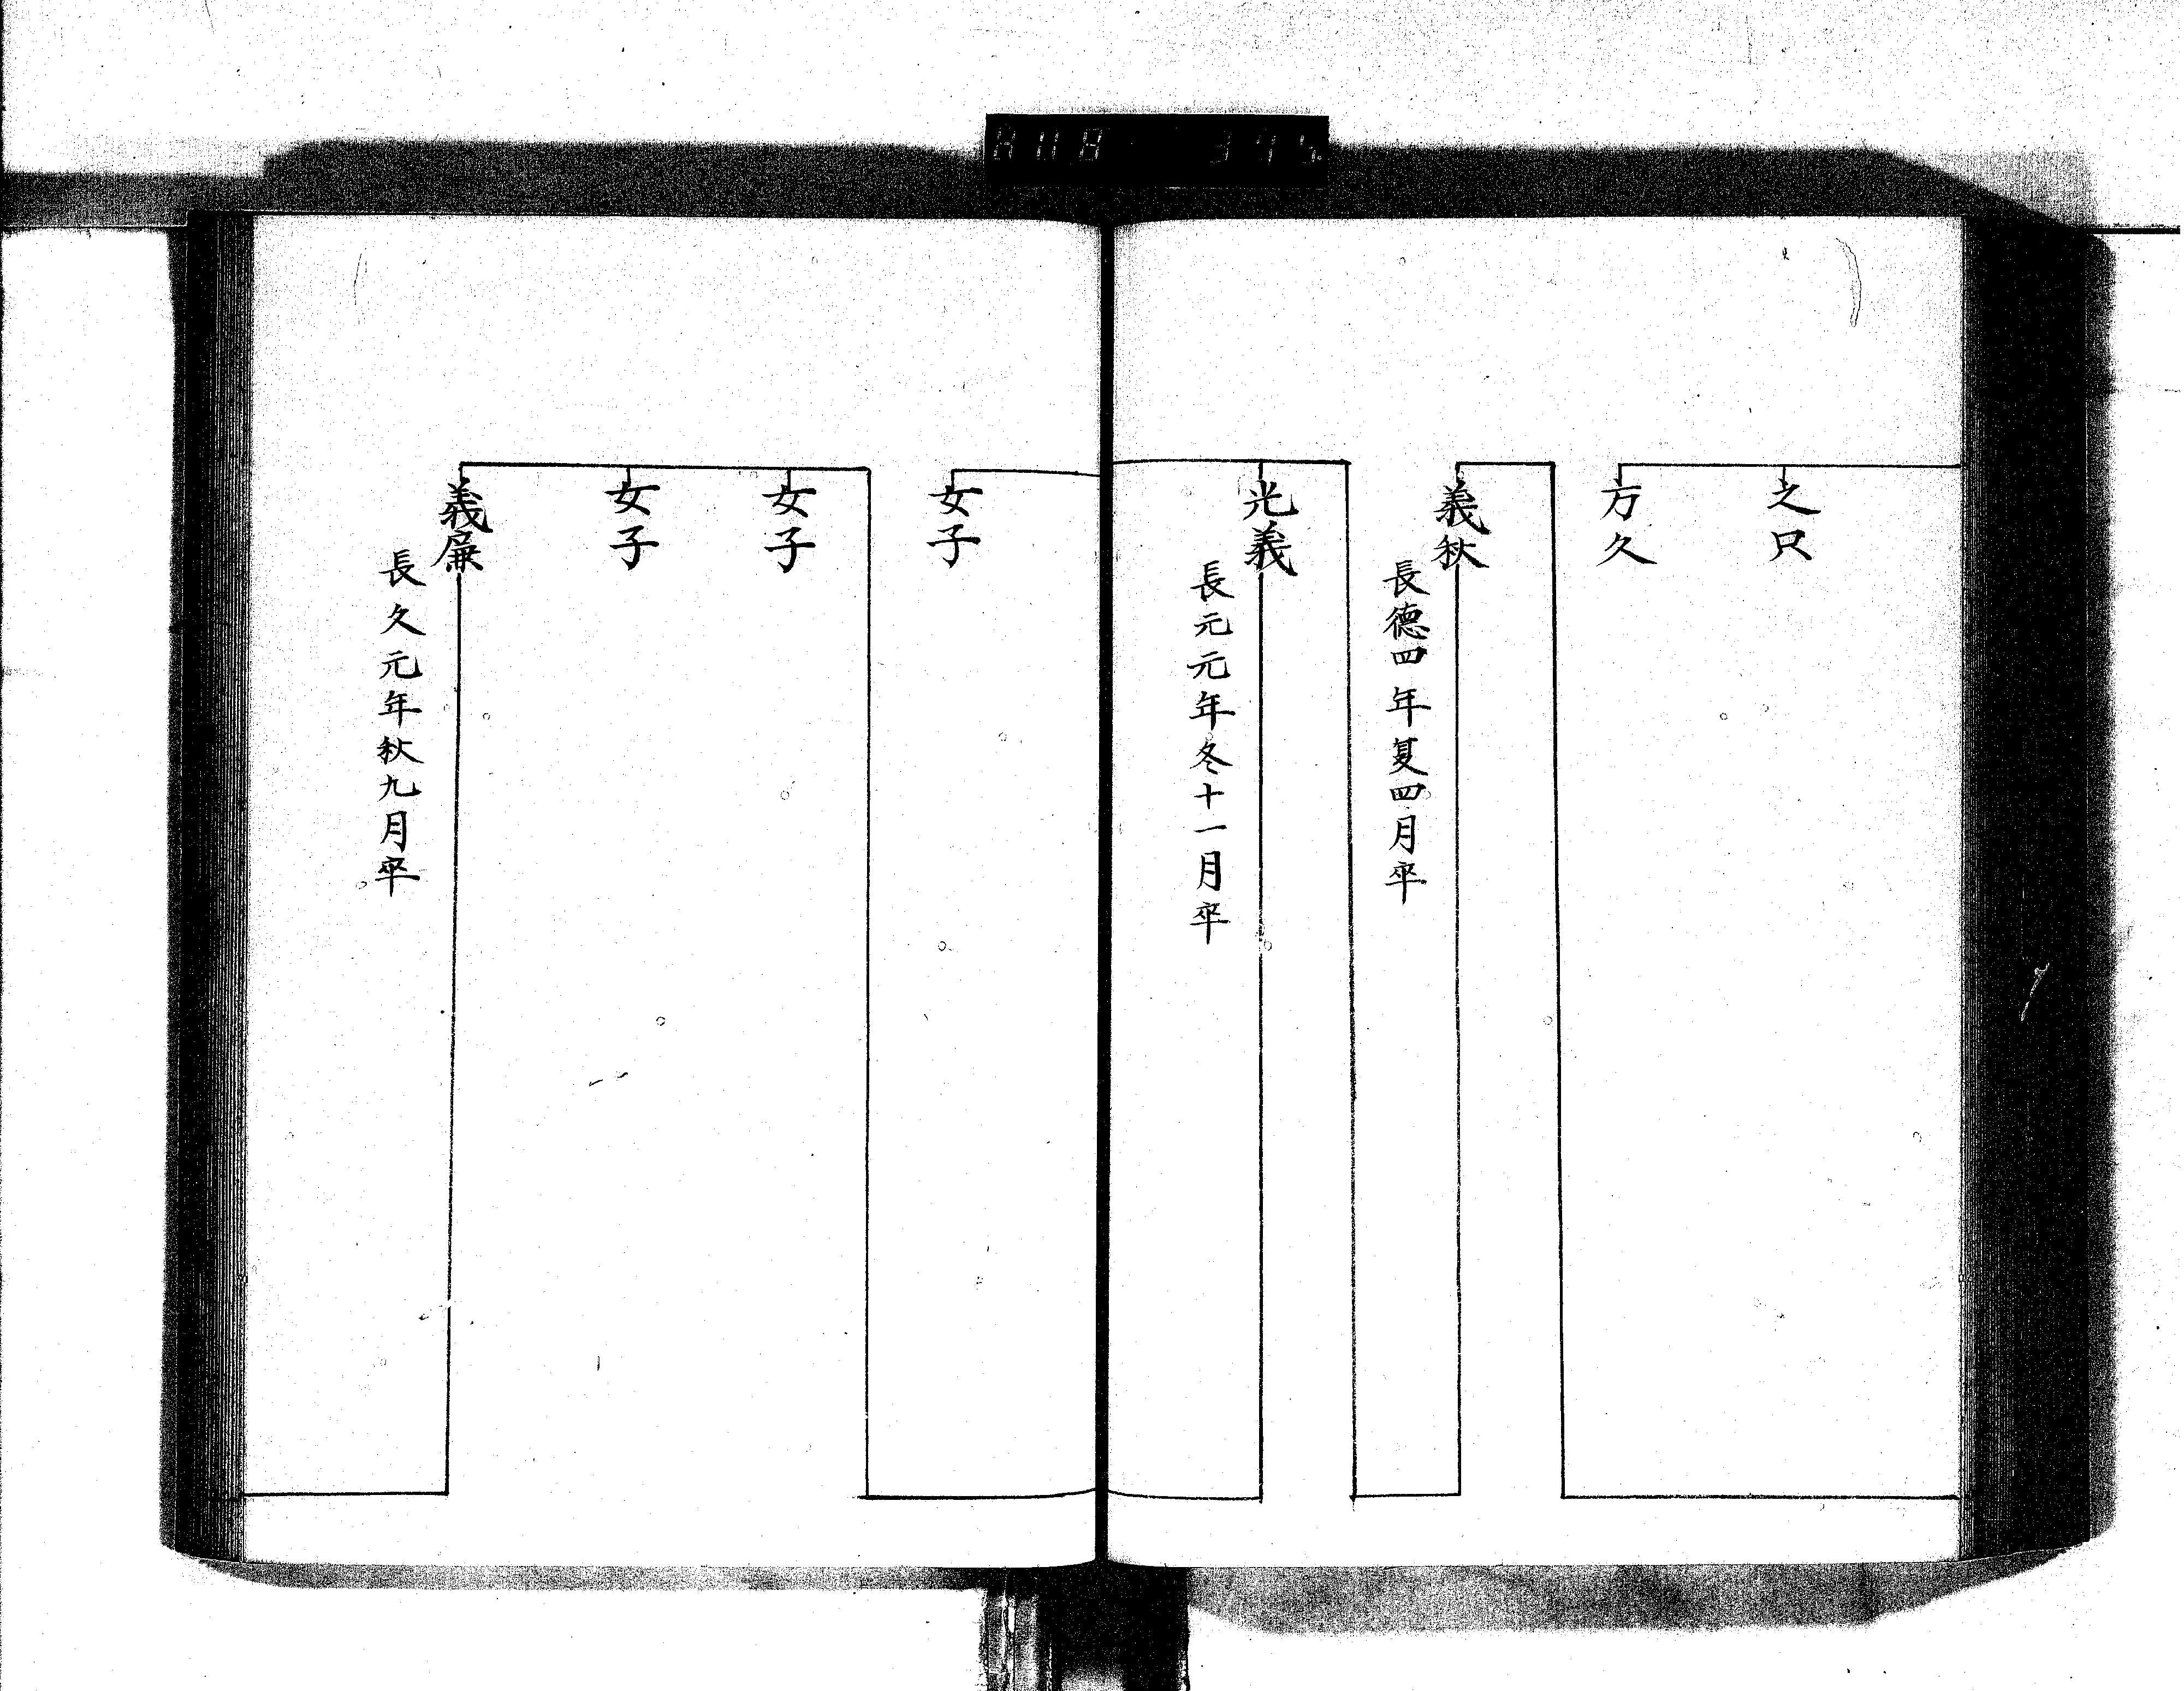 之只
方久
義秋
長德四年夏四月卒
光義
長元元年冬十一月卒
女子
女子
女子
義廉
長久元年秋九月卒